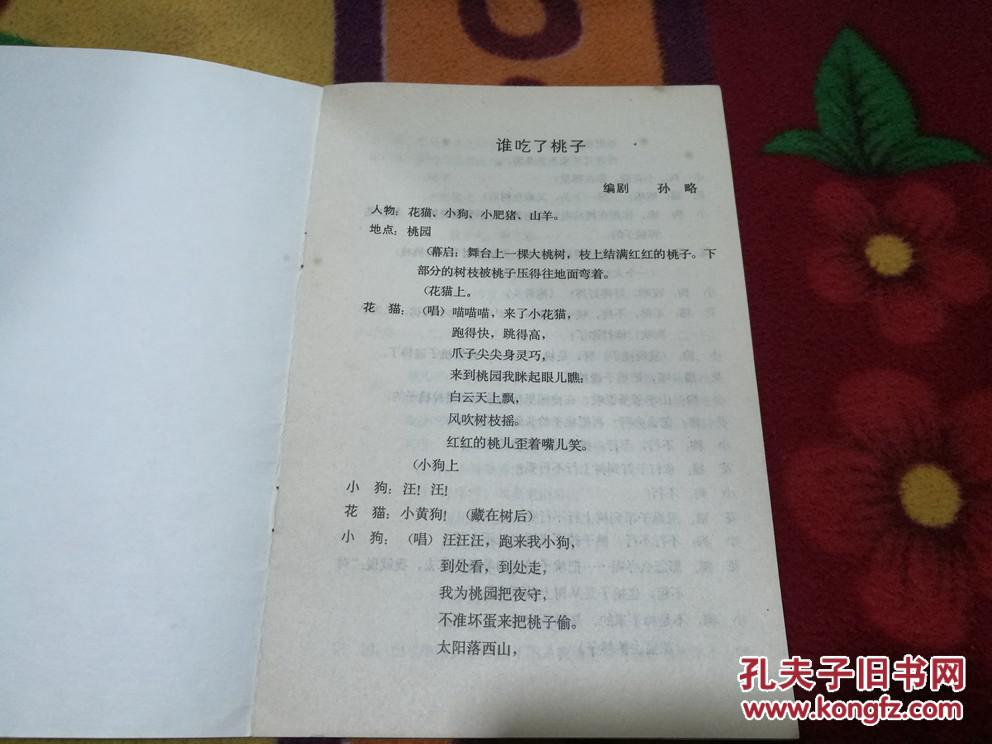 谁吃了桃子
编剧 孙略
人物：花猫、小狗、小肥猪、山羊。
地点：桃园
（幕启：舞台上一棵大桃树，枝上结满红红的桃子。下
部分的树枝被桃子压得往地面弯着。
（花猫上。
花猫：（唱）喵喵喵，来了小花猫，
跑得快，跳得高，
爪子尖尖身灵巧，
来到桃园我眯起眼儿瞧：
白云天上飘，
风吹树枝摇。
红红的桃儿歪着嘴儿笑。
（小狗上
小狗：汪！汪！
花猫：小黄狗！（藏在树后）
小狗：（唱）汪汪汪，跑来我小狗，
到处看，到处走，
我为桃园把夜守，
不准坏蛋来把桃子偷。
太阳落西山，
孔夫子旧书网
www.kongfz.com